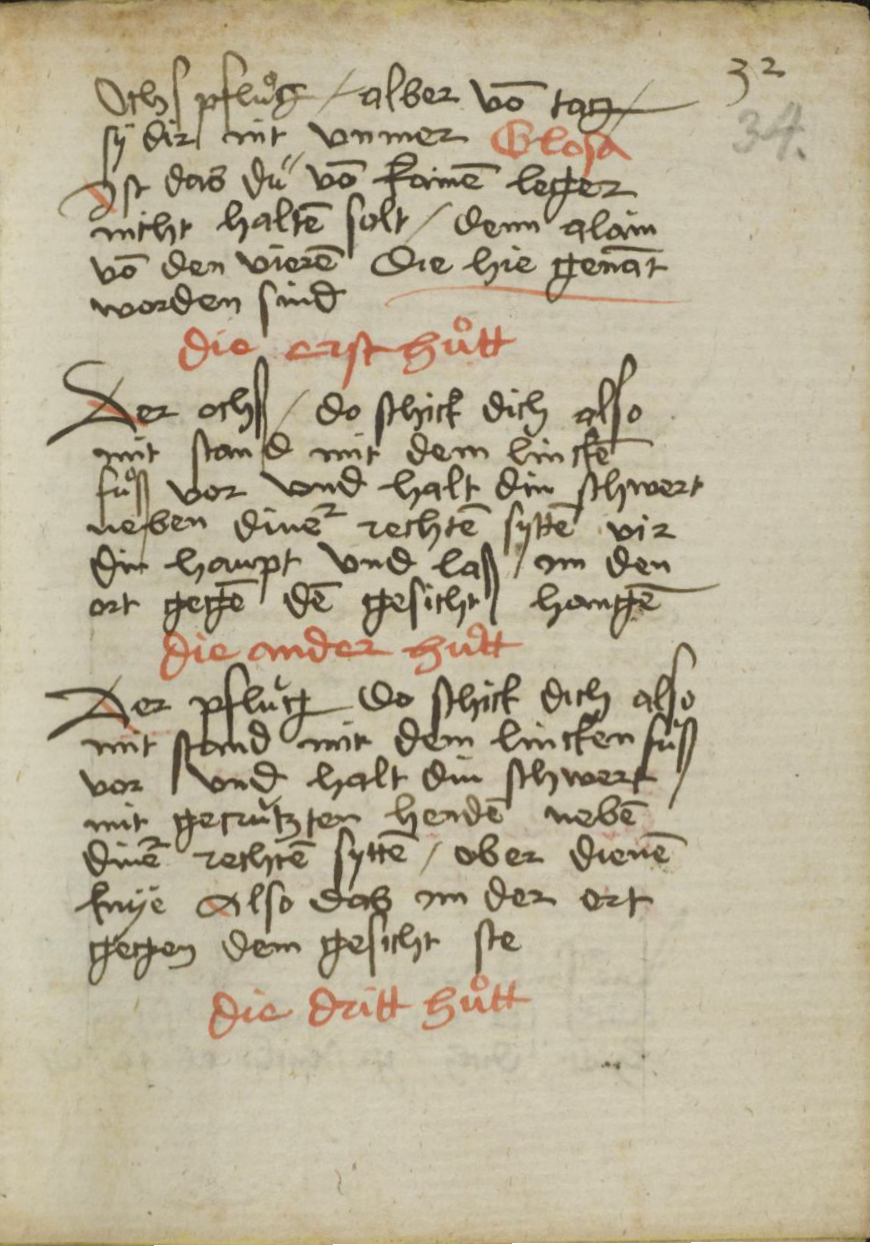 32
34.
Ochs pflůg / alber vō tag /
sÿ dir nit vnmer Glosa
Ist das dű vō kainē leger
nicht haltē solt / denn alain
vō den vierē Die hie genāt
worden sind
die erst hůtt
Der ochß / do schick dich also
mit stand mit dem linckē
fůß vor vnd halt din schwert
neben dinē² rechtē syttē vir
din haupt vnd laß / im den
ort gegē dē gesicht hangē
die ander hůtt
Der pflůg Do schick dich also
mit stand mit dem lincken fůß
vor vnd halt din schwert /
mit gecrützten hendē nebē
dinē² rechtē syttē / ober dienē
knÿe Also daß im der ort
gegen dem gesicht ste
die dritt hůtt